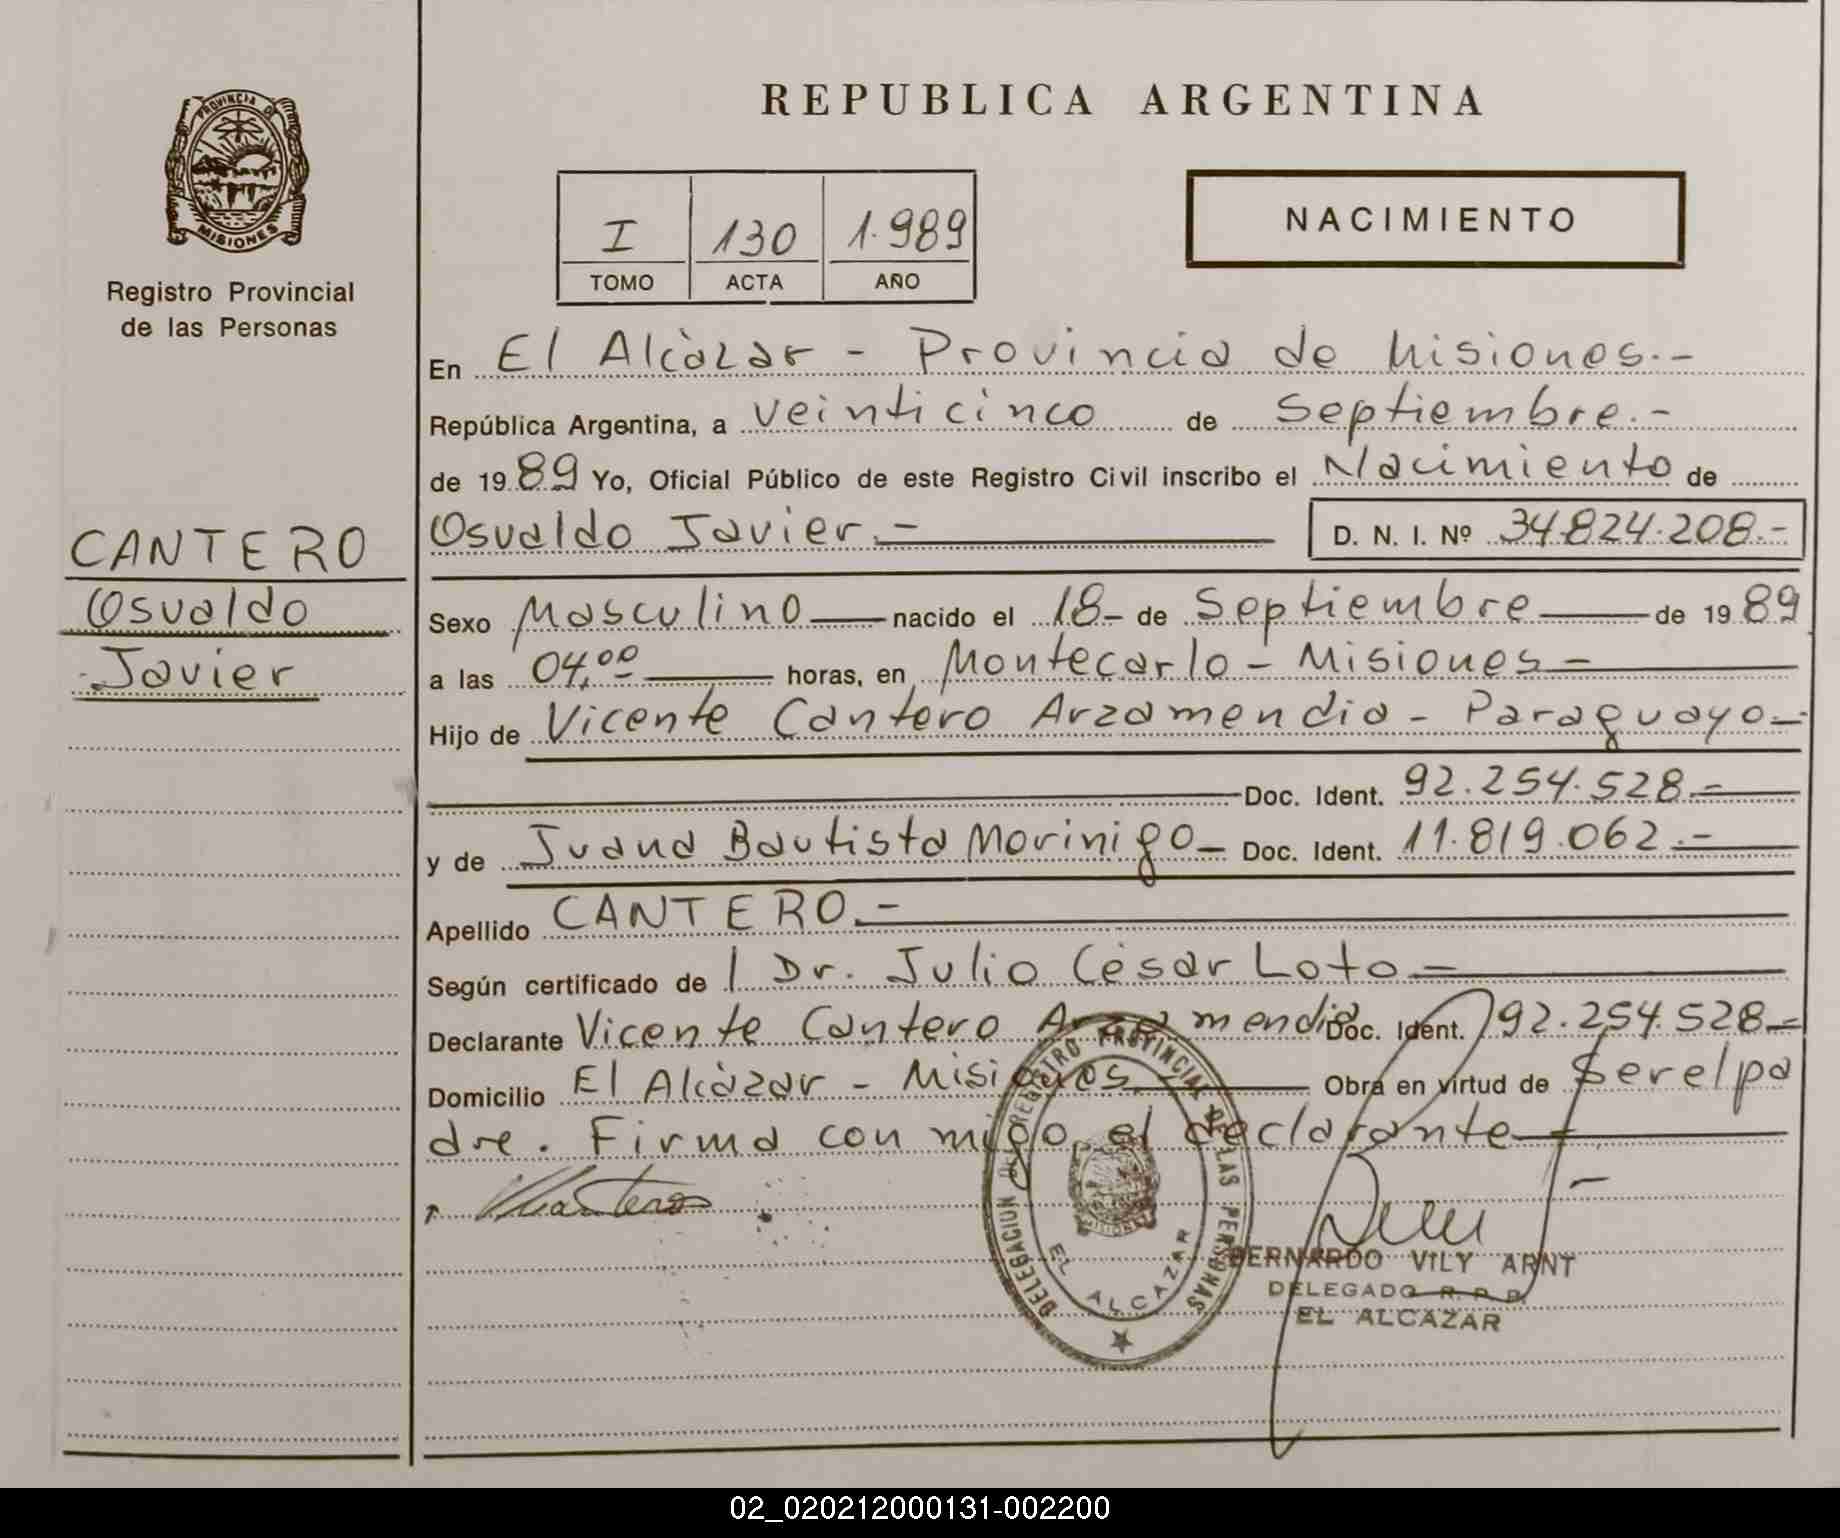 PROVINCIA DE
MISIONES
Registro Provincial
de las Personas
CANTERO
Osvaldo
Javier
REPUBLICA ARGENTINA
I 130 1.989
TOMO ACTA AÑO
NACIMIENTO
En El Alcàzar - Provincia de Misiones.-
República Argentina, a veinticinco de Septiembre.-
de 1989 Yo, Oficial Público de este Registro Civil inscribo el Nacimiento de
Osvaldo Javier.- D. N. I. Nº 34.824.208.-
Sexo Masculino nacido el 18- de Septiembre de 1989
a las 04,00 horas, en Montecarlo - Misiones -
Hijo de Vicente Cantero Arzamendia - Paraguayo -
Doc. Ident. 92.254.528.-
y de Juana Bautista Morinigo - Doc. Ident. 11.819.062.-
Apellido CANTERO.-
Según certificado de l Dr. Julio Cèsar Loto -
Declarante Vicente Cantero Arzamendia Doc. Ident. 92.254.528 -
Domicilio El Alcàzar - Misiones. Obra en virtud de Ser el pa
dre. Firma con migo el declarante -
Cantero
DELEGACION DEL REGISTRO PROVINCIAL DE LAS PERSONAS
MISIONES
EL ALCAZAR
BERNARDO VILY ARNT
DELEGADO R. P. P.
EL ALCAZAR
02_020212000131-002200